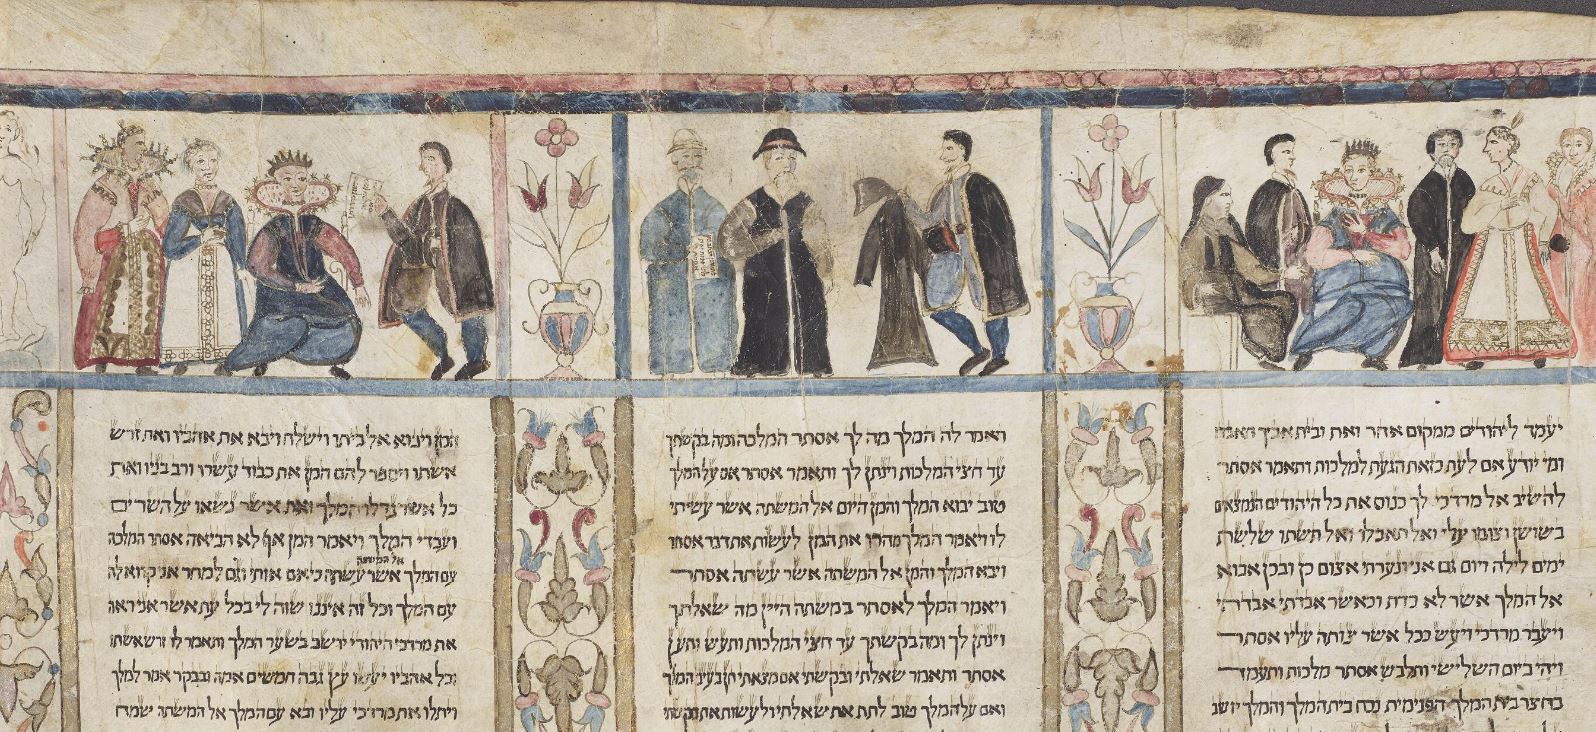 יעמד ליהודים ממקום אחר ואת ובית אביך תאבדו
ומי יודע אם לעת כזאת הגעת למלכות ותאמר אסתר
להשיב אל מרדכי לך כנוס את כל היהודים הנמצאים
בשושן וצומו עלי ואל תאכלו ואל תשתו שלשת
ימים לילה ויום גם אני ונערתי אצום כן ובכן אבוא
אל המלך אשר לא כדת וכאשר אבדתי אבדתי
ויעבר מרדכי ויעש ככל אשר צותה עליו אסתר
ויהי ביום השלישי ותלבש אסתר מלכות ותעמד
בחצר בית המלך הפנימית נכח בית המלך והמלך יושב
ויאמר לה המלך מה לך אסתר המלכה ומה בקשתך
עד חצי המלכות וינתן לך ותאמר אסתר אם על המלך
טוב יבוא המלך והמן היום אל המשתה אשר עשיתי
לו ויאמר המלך מהרו את המן לעשות את דבר אסתר
ויבא המלך והמן אל המשתה אשר עשתה אסתר
ויאמר המלך לאסתר במשתה היין מה שאלתך
וינתן לך ומה בקשתך עד חצי המלכות ותעש ותען
אסתר ותאמר שאלתי ובקשתי אם מצאתי חן בעיני המלך
ואם על המלך טוב לתת את שאלתי ולעשות את בקשתי
המן ויבוא אל ביתו וישלח ויבא את אהביו ואת זרש
אשתו ויספר להם המן את כבוד עשרו ורב בניו ואת
כל אשר גדלו המלך ואת אשר נשאו על השרים
ועבדי המלך ויאמר המן אף לא הביאה אסתר המלכה
אל המשתה
עם המלך אשר עשתה כי אם אותי וגם למחר אני קרוא לה
עם המלך וכל זה איננו שוה לי בכל עת אשר אני ראה
את מרדכי היהודי יושב בשער המלך ותאמר לו זרש אשתו
וכל אהביו יעשו עץ גבה חמשים אמה ובבקר אמר למלך
ויתלו את מרדכי עליו ובא עם המלך אל המשתה שמח